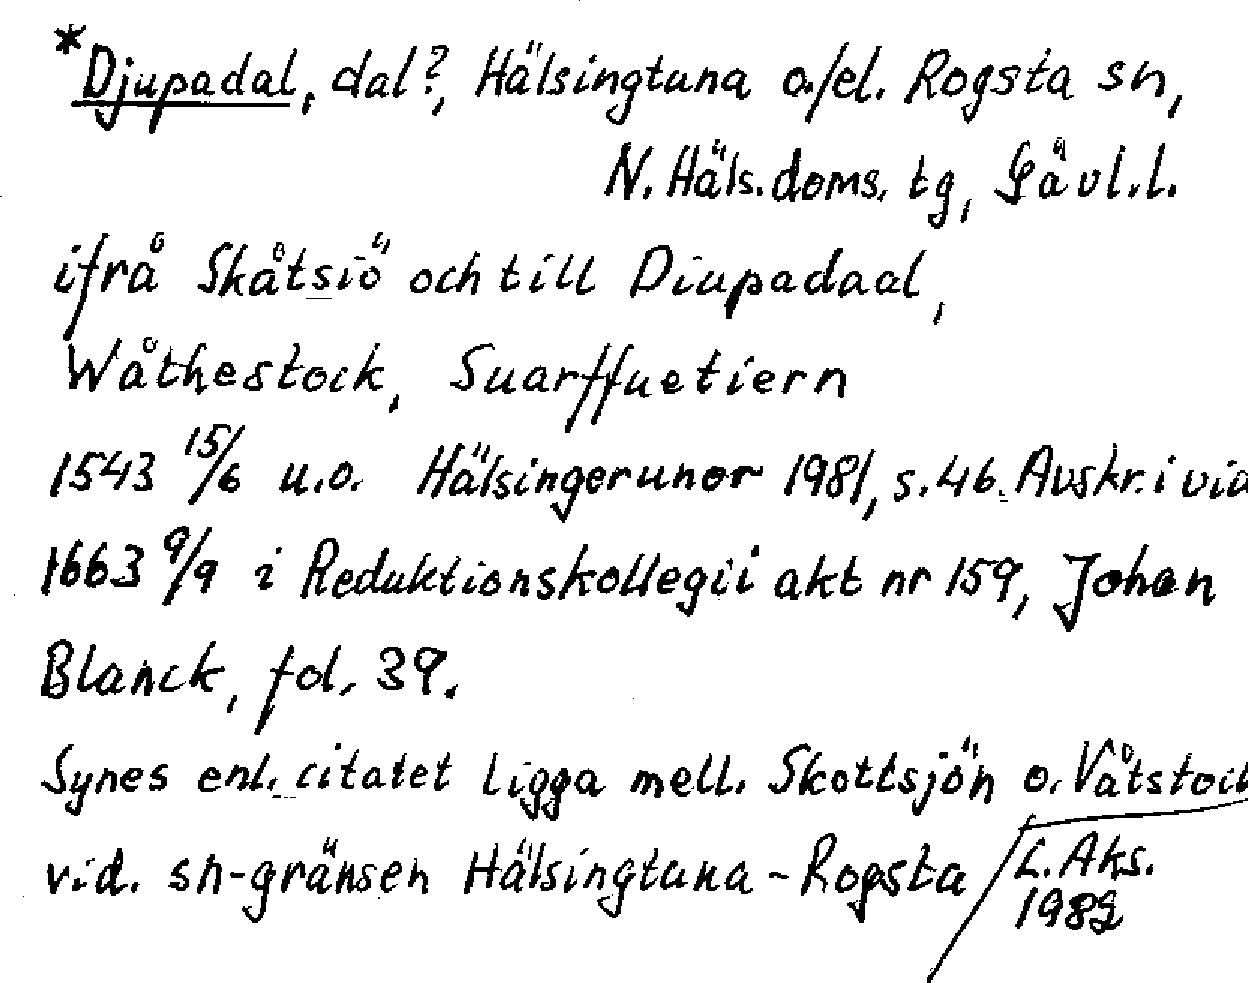 *Djupadal, dal?, Hälsingtuna o./el. Rogsta sn,
N. Häls. doms. tg, Gävl. l.
ifrå Skåtsiö och till Diupadaal,
Wåthestock, Suarffuetiern
1543 15/6 u.o. Hälsingerunor 1981, s. 46. Avskr. i vid
1663 9/9 i Reduktionskollegii akt nr 159, Johan
Blanck, fol. 39.
Synes enl. citatet ligga mell. Skottsjön o. Våtstock
vid. sn-gränsen Hälsingtuna - Rogsta
L. Aks.
1982